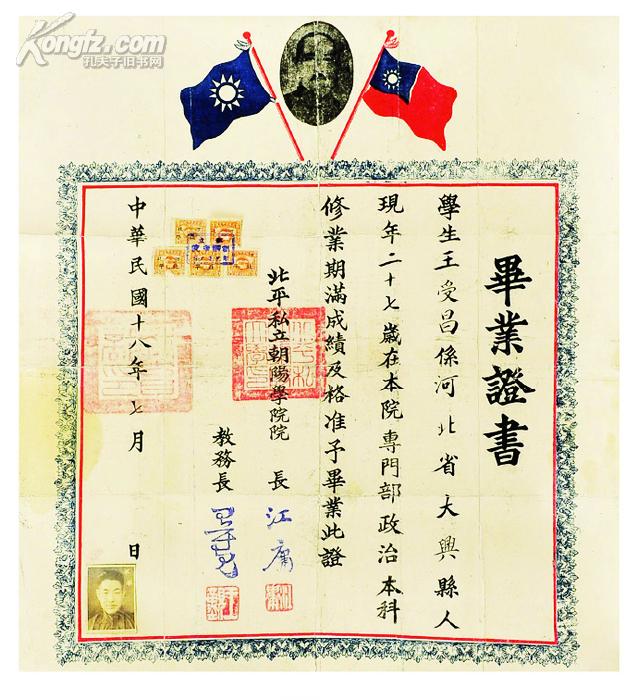 Kongfz.com
孔夫子旧书网
畢業證書
學生王受昌係河北省大興縣人
現年二十七歲在本院專門部政治本科
修業期滿成績及格准予畢業此證
北平私立朝陽學院院長 江庸
教務長
中華民國十八年七月 日